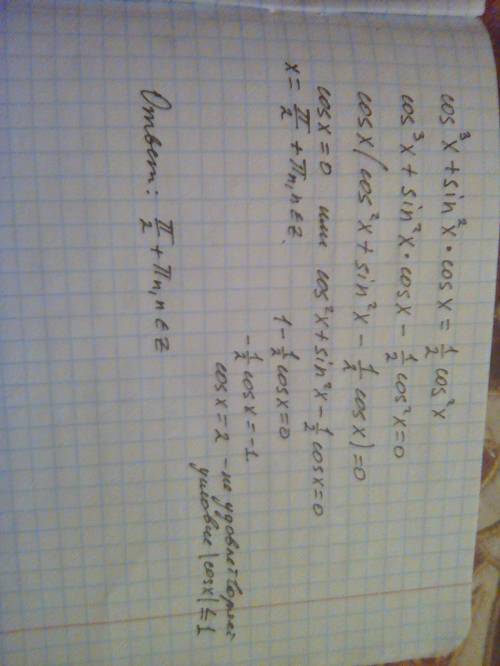 cos³x + sin²x · cosx = 1/2 cos²x
cos³x + sin²x · cosx − 1/2 cos²x = 0
cosx (cos²x + sin²x − 1/2 cosx) = 0
cosx = 0 или cos²x + sin²x − 1/2 cosx = 0
x = π/2 + πn, n ∈ Z. 1 − 1/2 cosx = 0
− 1/2 cosx = −1
cosx = 2 − не удовлетворяет
условие |cosx| ≤ 1
Ответ: π/2 + πn, n ∈ Z